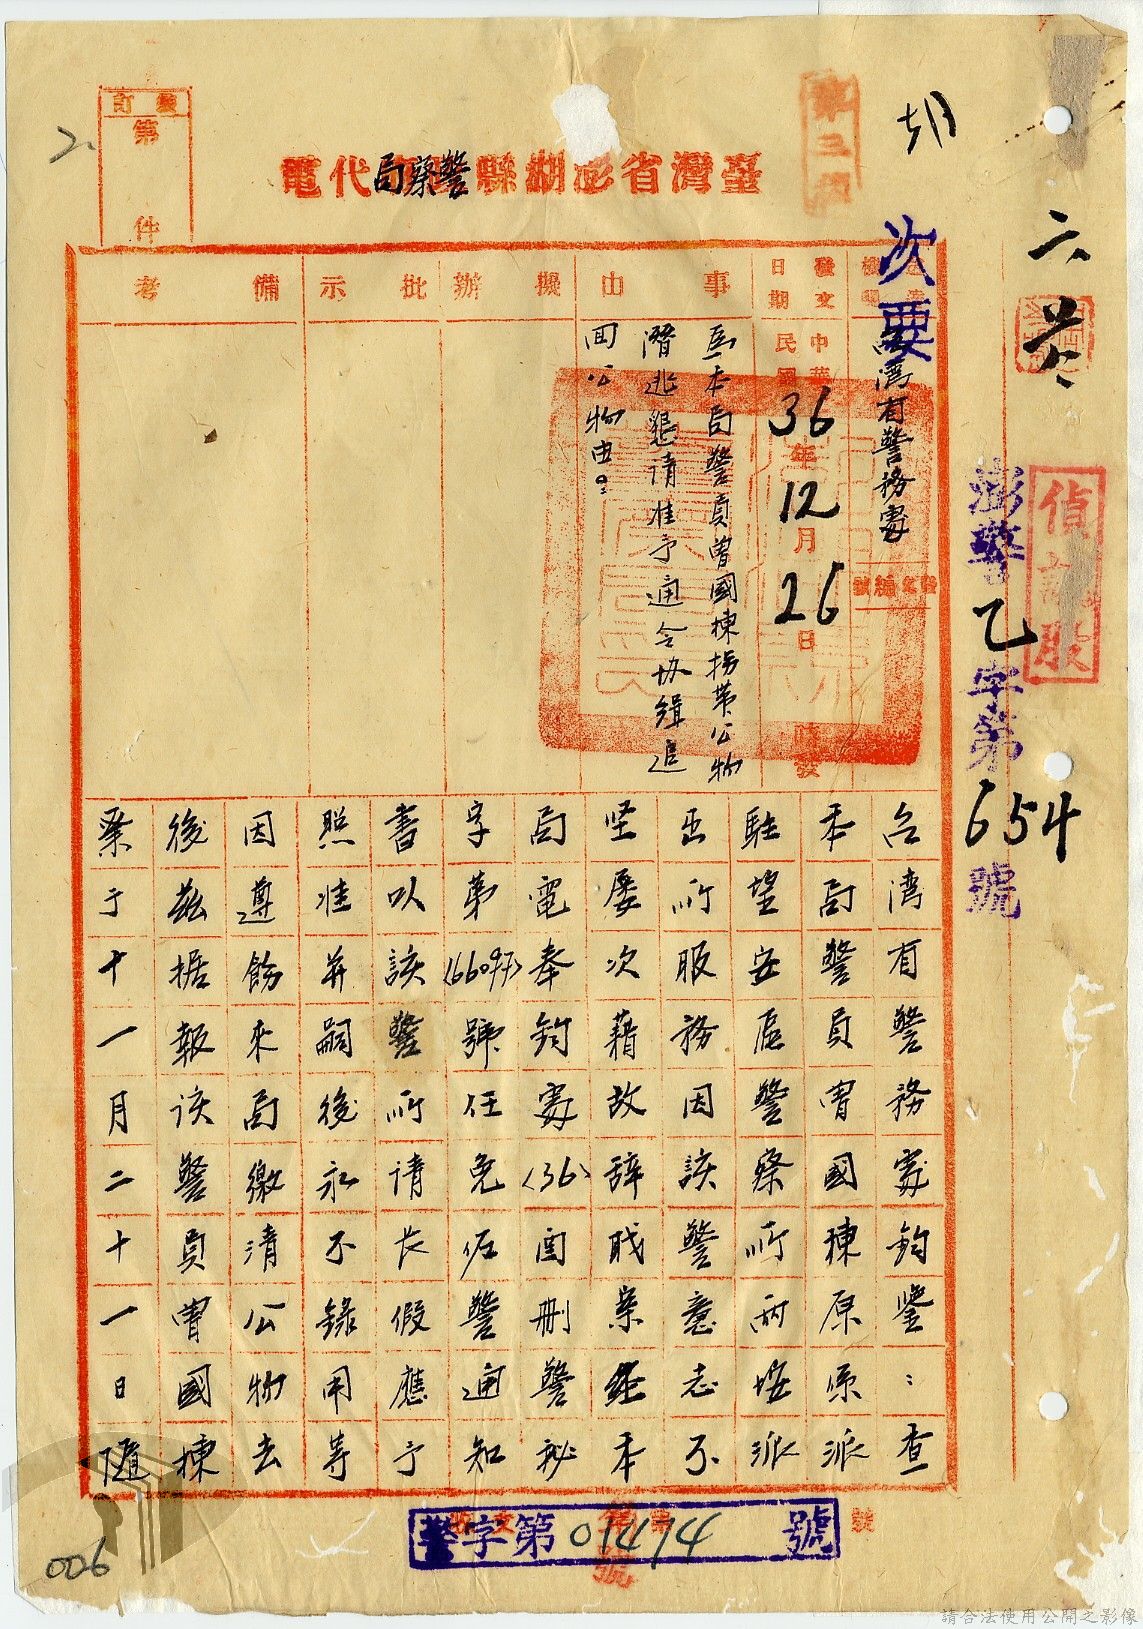 臺灣省澎湖縣警察局代電
裝訂
第 件
2
胡
六 共
第三類
次要
偵 股
澎警乙字第654號
台湾省警務處
發文日期
中華民國36年12月26日 發
事由
為本局警員曾國棟拐帶公物
潛逃懇请准予通令协缉追
回公物由
擬辦
批示
備考
台湾省警務處鈞鑒：查
本局警員曾國棟原系派
駐望安區警察所西垵派
出所服務因該警意志不
坚屡次藉故辞职業經本
局電奉鈞處〈36〉酉刪警祕
字第〈66097〉號任免佰警通知
書以該警所请长假應予
照准并嗣後永不錄用等
因遵飭来局繳清公物去
後茲据報该警員曾國棟
業于十一月二十一日隨
收文 警字第01474號
006
請合法使用公開之影像